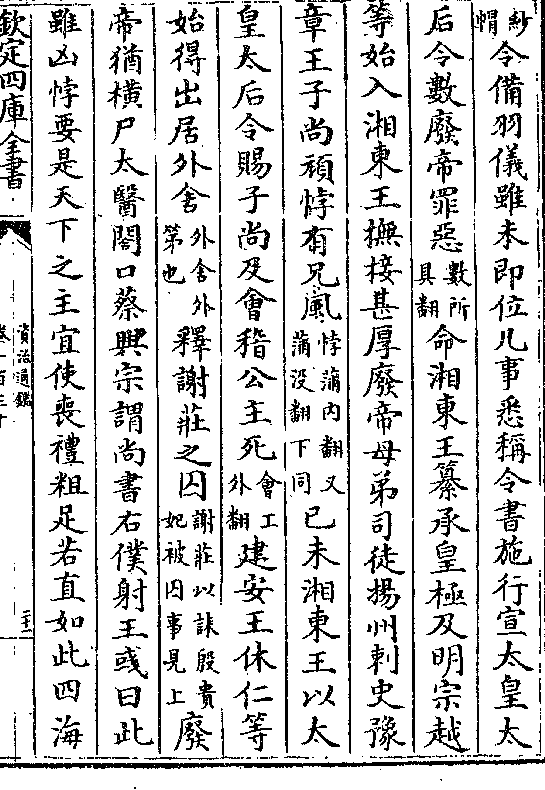 紗帽令備羽儀雖未即位凡事悉稱令書施行宣太皇太
后令數廢帝罪惡數所具翻命湘東王纂承皇極及明宗越
等始入湘東王撫接甚厚廢帝母弟司徒揚州刺史豫
章王子尚頑悖有兄風悖蒲內翻又蒲沒翻下同己未湘東王以太
皇太后令賜子尚及會稽公主死會工外翻建安王休仁等
始得出居外舍外舍外第也釋謝莊之囚謝莊以誄殷貴妃被囚事見上廢
帝猶橫尸太醫閤口蔡興宗謂尚書右僕射王彧曰此
雖凶悖要是天下之主宜使喪禮粗足若直如此四海
欽定四庫全書
資治通鑑
卷一百三十